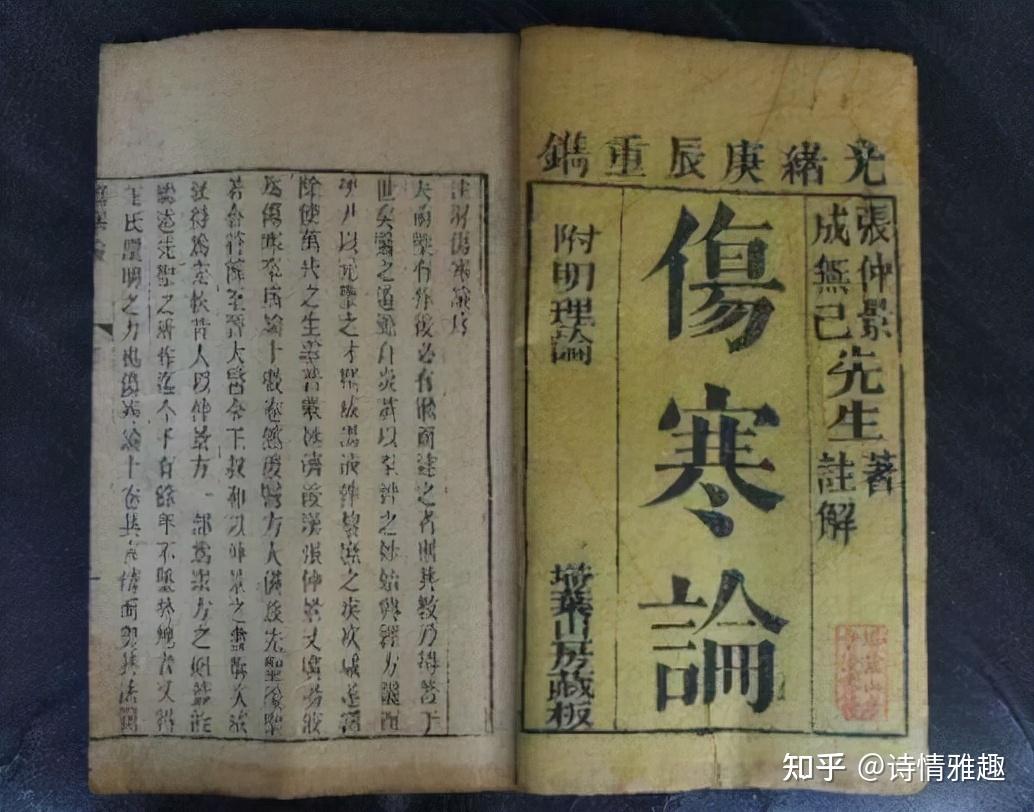 光緒庚辰重鐫
張仲景先生著
成無己先生註解
傷寒論
附明理論
埽葉山房藏板
註解傷寒論序
夫前聖有作後必有繼而述之者則其教乃得著于
世矣醫之道源自炎黃以至神之妙始興經方繼而
伊尹以元聖之才撰成湯液俾黎庶之疾疢咸遂蠲
除使萬代之生靈普蒙拯濟後漢張仲景又廣湯液
為傷寒卒病論十數卷然後醫方大備茲先聖後聖
若合符節至晉太醫令王叔和以仲景之書撰次成
敘得為完秩昔人以仲景方一部為眾方之祖蓋能
繼述先聖之所作迄今千有餘年不墜於地者又得
王氏闡明之力也傷寒論十卷其言精而奧其法簡
知乎 @诗情雅趣